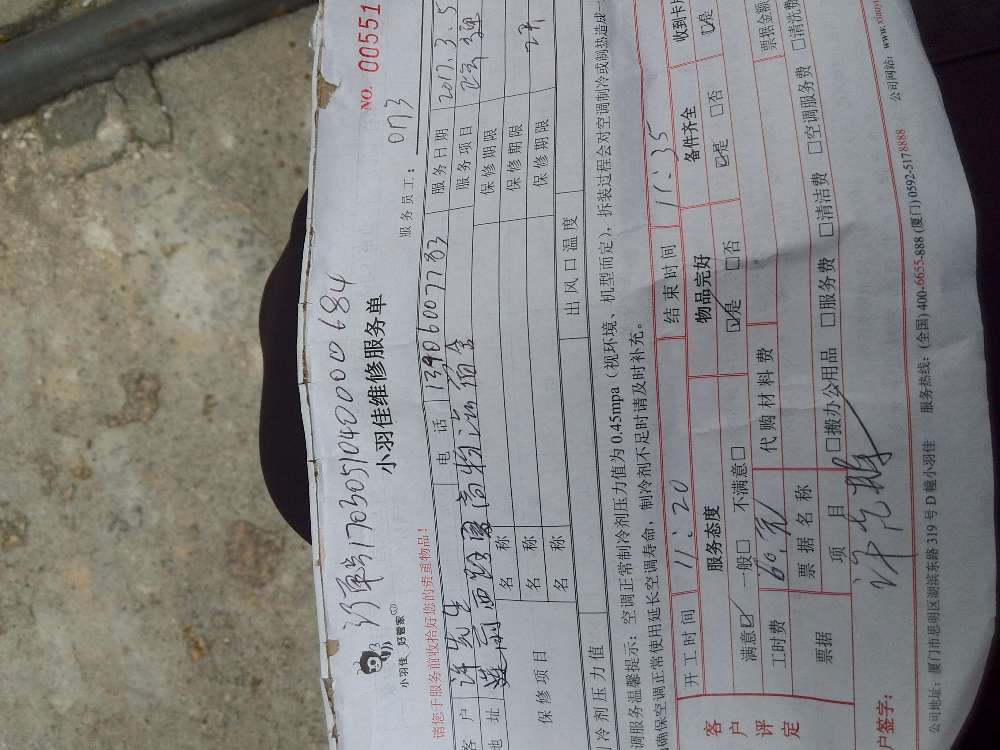 NO. 00551
订单170305104000684
小羽佳 好管家
小羽佳维修服务单
服务员工： 0773
请您于服务前收拾好您的贵重物品！
客户 许先生 电 话 13906007783 服务日期 2017.3.5
地址 服务项目
保修项目 名 称 保修期限
名 称 保修期限
名 称 保修期限
制冷剂压力值 出风口温度
调服务温馨提示：空调正常制冷剂压力值为0.45mpa（视环境、机型而定），拆装过程会对空调制冷或制热造成一
确保空调正常使用延长空调寿命，制冷剂不足时请及时补充。
开工时间 11：20 结束时间 11：35
客户评定 服务态度 物品完好 备件齐全 收到卡
满意☑ 一般□ 不满意□ ☑是 □否 ☑是 □否 ☑是
工时费 60元 代购材料费 票据金额
票据 票据名称
项 目 □搬办公用品 □服务费 □清洁费 □空调服务费 □清洗费
户签字：
公司地址：厦门市思明区湖滨东路319号D幢小羽佳 服务热线：(全国) 400-6655-888 (厦门) 0592-5178888 公司网站：www.xiaoy